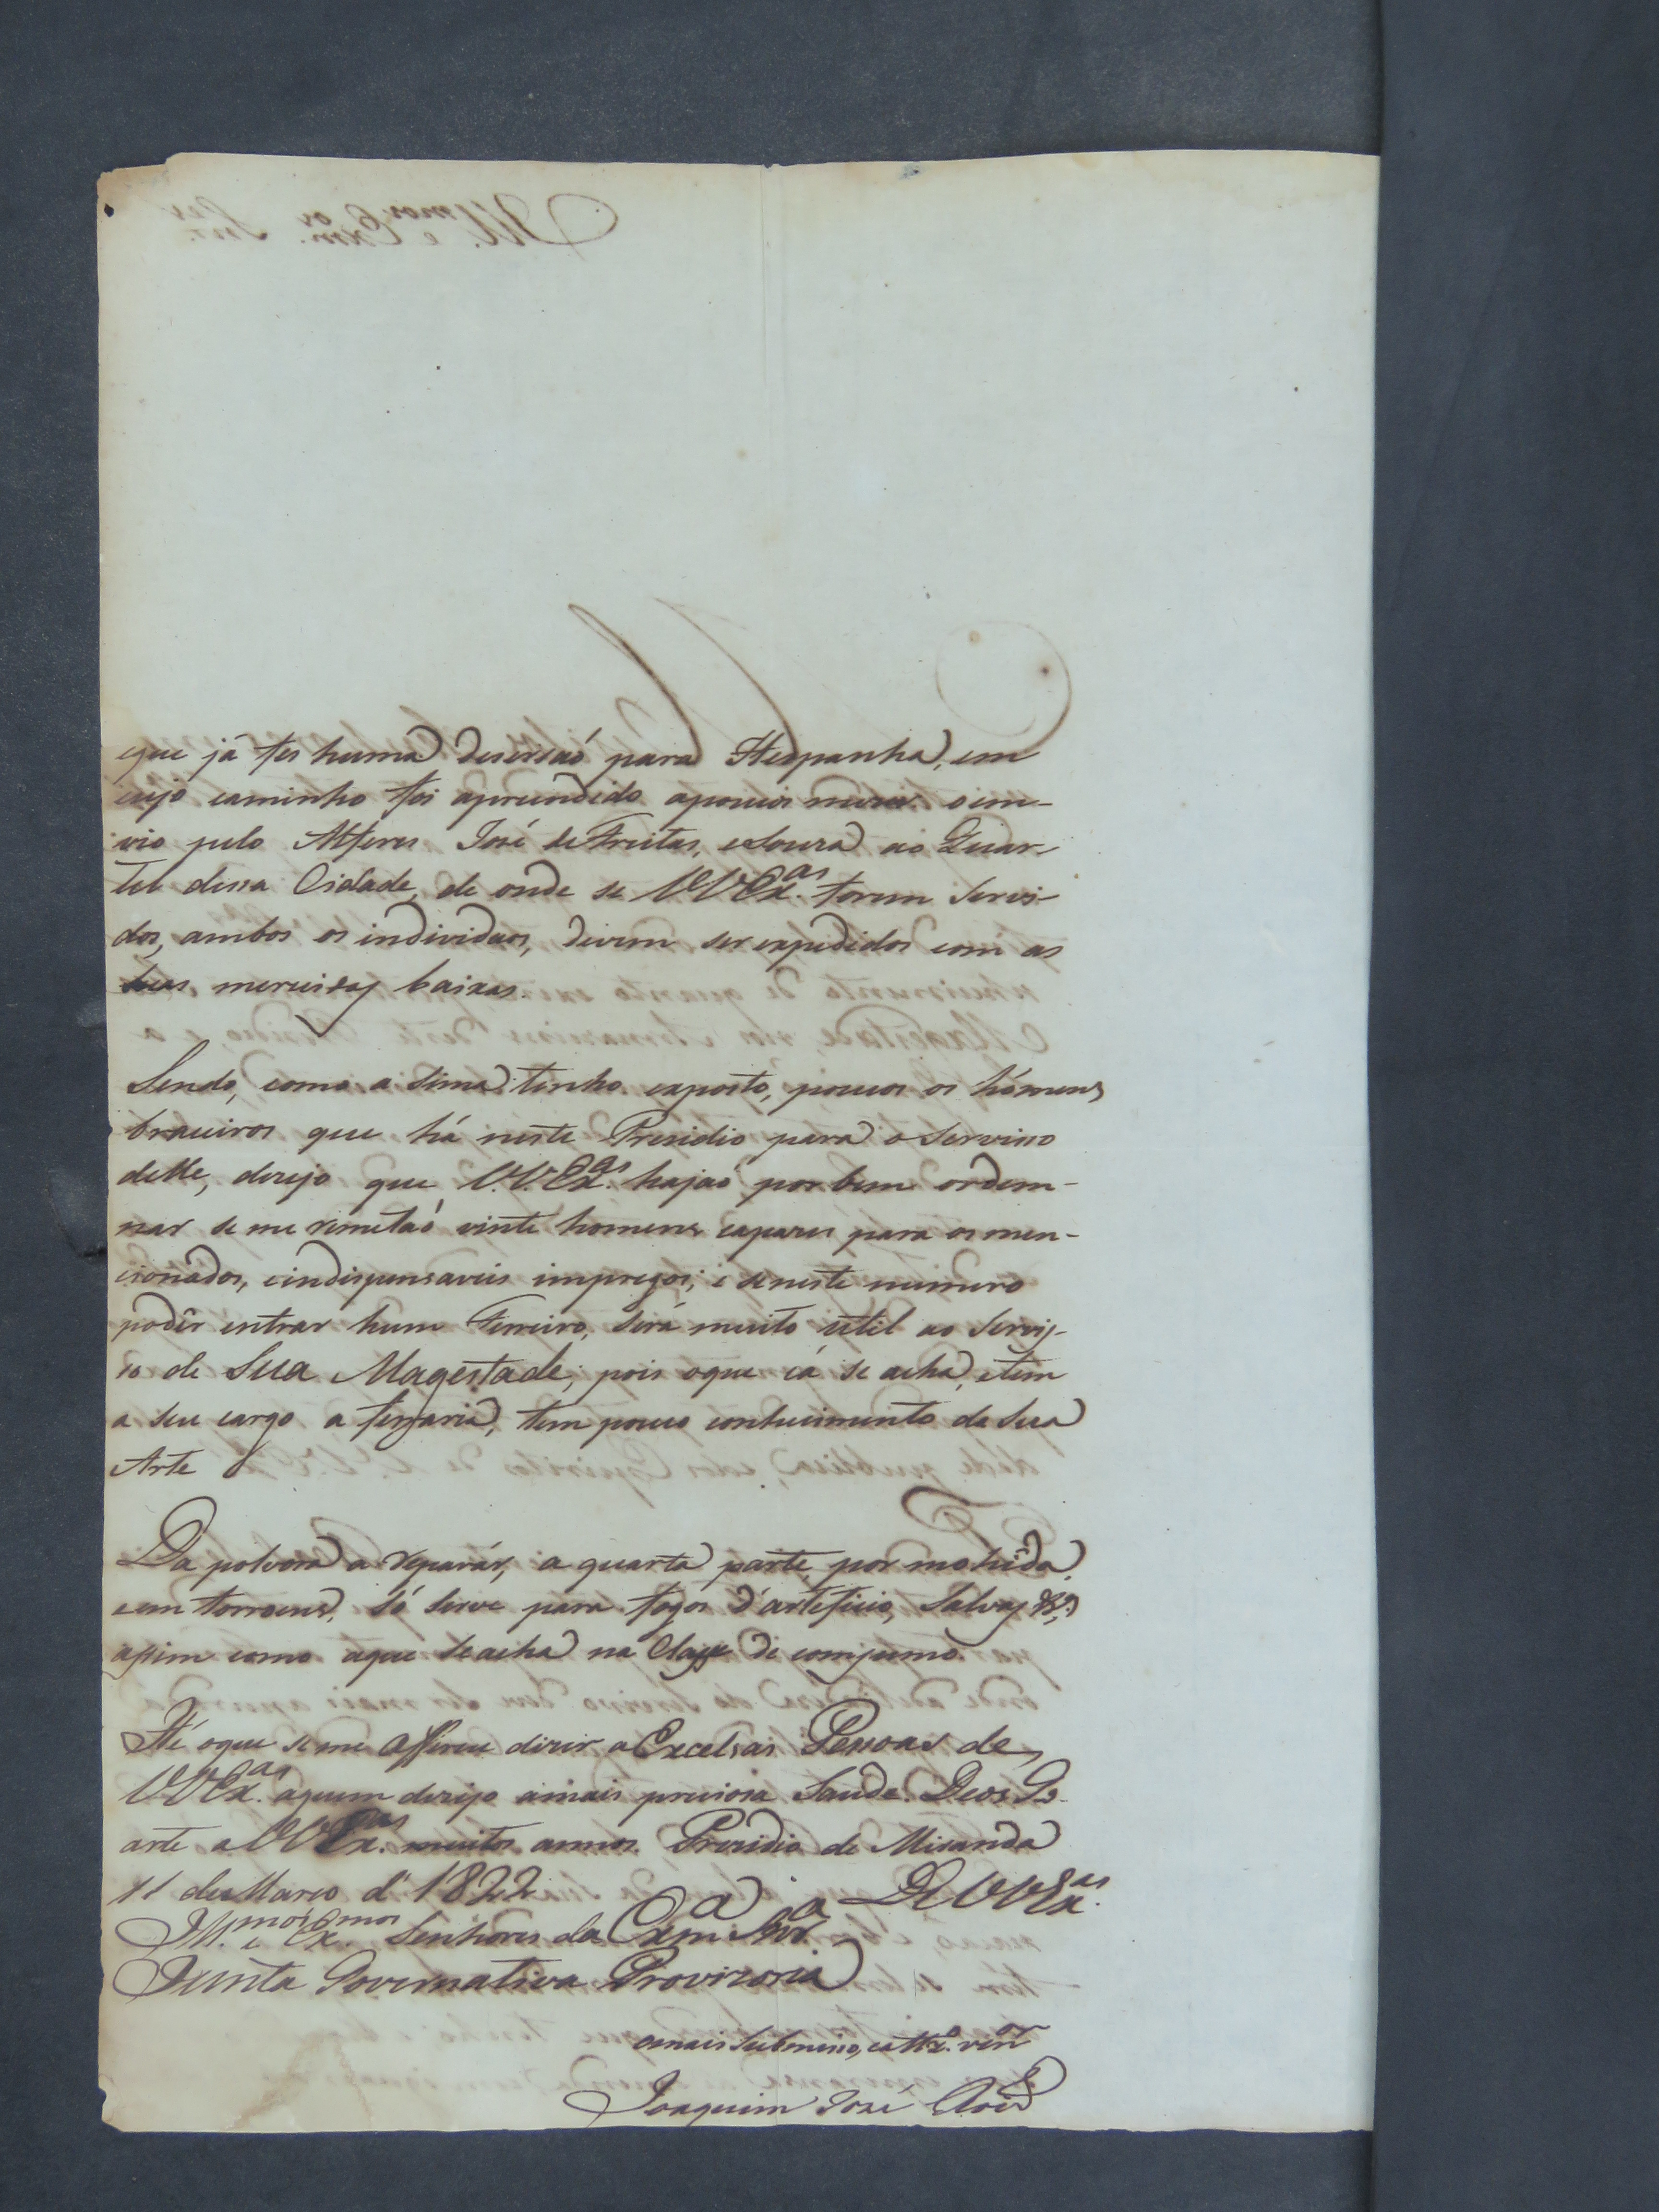 que já fes huma desersaõ para Hespanha, em
cujo caminho foi aprendido a poucos mezes o in-
vio pelo Alferes José de Freitas, e Souza ao Quar-
tel dessa Cidade, de onde se VVEx.as forem servi-
dos, ambos os individuos, devem ser expedidos com as
suas mereisdas baixas.
Sendo, como a sima tenho exposto, poucos os hómens
braceiros que há neste Presidio para o servisso
delle, dezejo que V.V.Ex.as hajaõ por bem ordem-
nar se me remetaõ vinte homens capazes para os men-
cionados, e indispensaveis impregos; e se neste numero
podêr entrar hum Ferreiro, será muito util ao Servis-
so de Sua Magestade; pois o que cá se acha, e tem
a seu cargo a ferraria, tem pouco conhecimento da sua
Arte
Da polvora a reparár, a quarta parte, por mohida,
e em torroens, só serve para fogos d'artificio, Salvas &.a,
assim como a que se acha na Classe de comsumo.
Hé o que se me offerece dizer a Excelsas Pessoas de
VVEx.as a quem dezejo a mais preciosa Saude. Deos G.
arde a VVEx.as muitos annos. Prezidio de Miranda
11 de Marco d'1822
De VVEx.as
Ill.mos e Ex.mos Senhores da Exm.a Snr.a
Junta Governativa Provizoria
o mais submisso, e att.o ven.or
Joaquim José
Ill.mos e Exm.os Snr.es